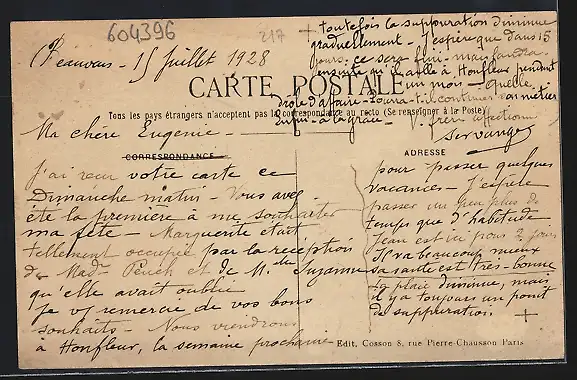 604396
217
Beauvais - 15 juillet 1928
CARTE POSTALE
Tous les pays étrangers n'acceptent pas la correspondance au recto (Se renseigner à la Poste)
Ma chère Eugénie -
CORRESPONDANCE
J'ai reçu votre carte ce
Dimanche matin - Vous avez
été la première à me souhaiter
ma fête - Marguerite était
tellement occupée par la réception
de Mad. et de Mlle Suzanne
qu'elle avait oublié
Je vs remercie de vos bons
souhaits - Nous viendrons
à Honfleur, la semaine prochaine
ADRESSE
pour passer quelques
vacances - J'espère
passer un peu plus de
temps que d'habitude
Jean est ici pour 2 jours
Il va beaucoup mieux
sa santé est très-bonne
la plaie diminue, mais
il y a toujours un point
de suppuration. +
+ toutefois la suppuration diminue
graduellement - J'espère que dans 15
jours ce sera fini - mais faudra
ensuite qu'il aille à Honfleur pendant
un mois - quelle
drôle d'affaire - Pourra-t-il continuer son métier
Enfin - à la grâce - V. frère affectionné
Servange
Edit. Cosson 8, rue Pierre-Chausson Paris